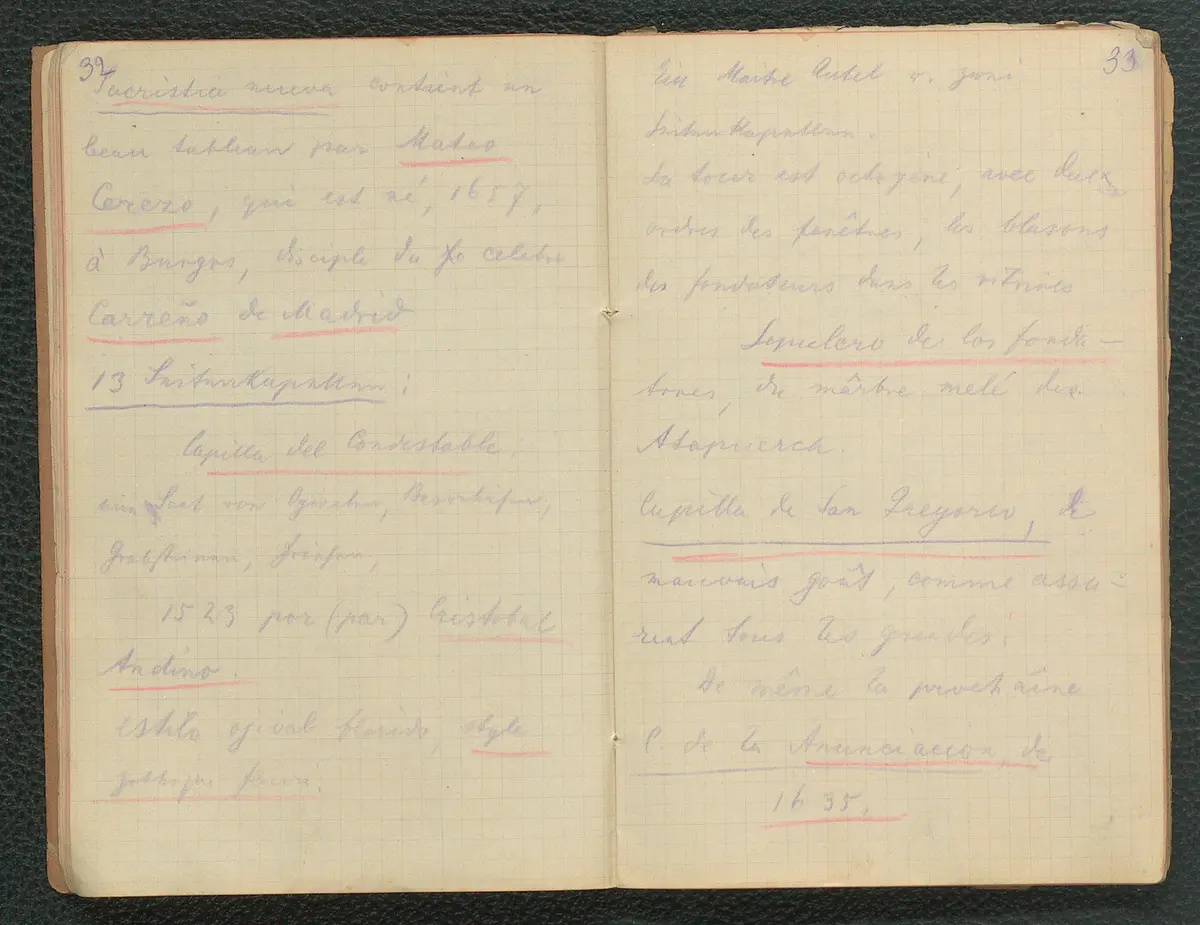 32
Sacristia nueva contient un
beau tableau par Mateo
Cerezo, qui est né, 1657,
à Burgos, disciple du celebre
Carreño de Madrid
13 Seitenkapellen:
Capilla del Condestable.
ein von
Grabsteinen,
1523 por (par) Cristobal
Andino.
estilo ojival florido, style
gothique fleuri.
33
Ein Maitre Autel v. zwei
Seitenkapellen.
La tour est octogène, avec deux
ordres des fenêtres, les blasons
des fondateurs dans les vitrines
Sepulcro de los funda-
tores, de mârbre melé de
Atapuerca.
Capilla de San Gregorio, de
mauvais goût, comme assu-
rent tous les guides;
De même la prochaine
C. de la Anunciacion de
1635.